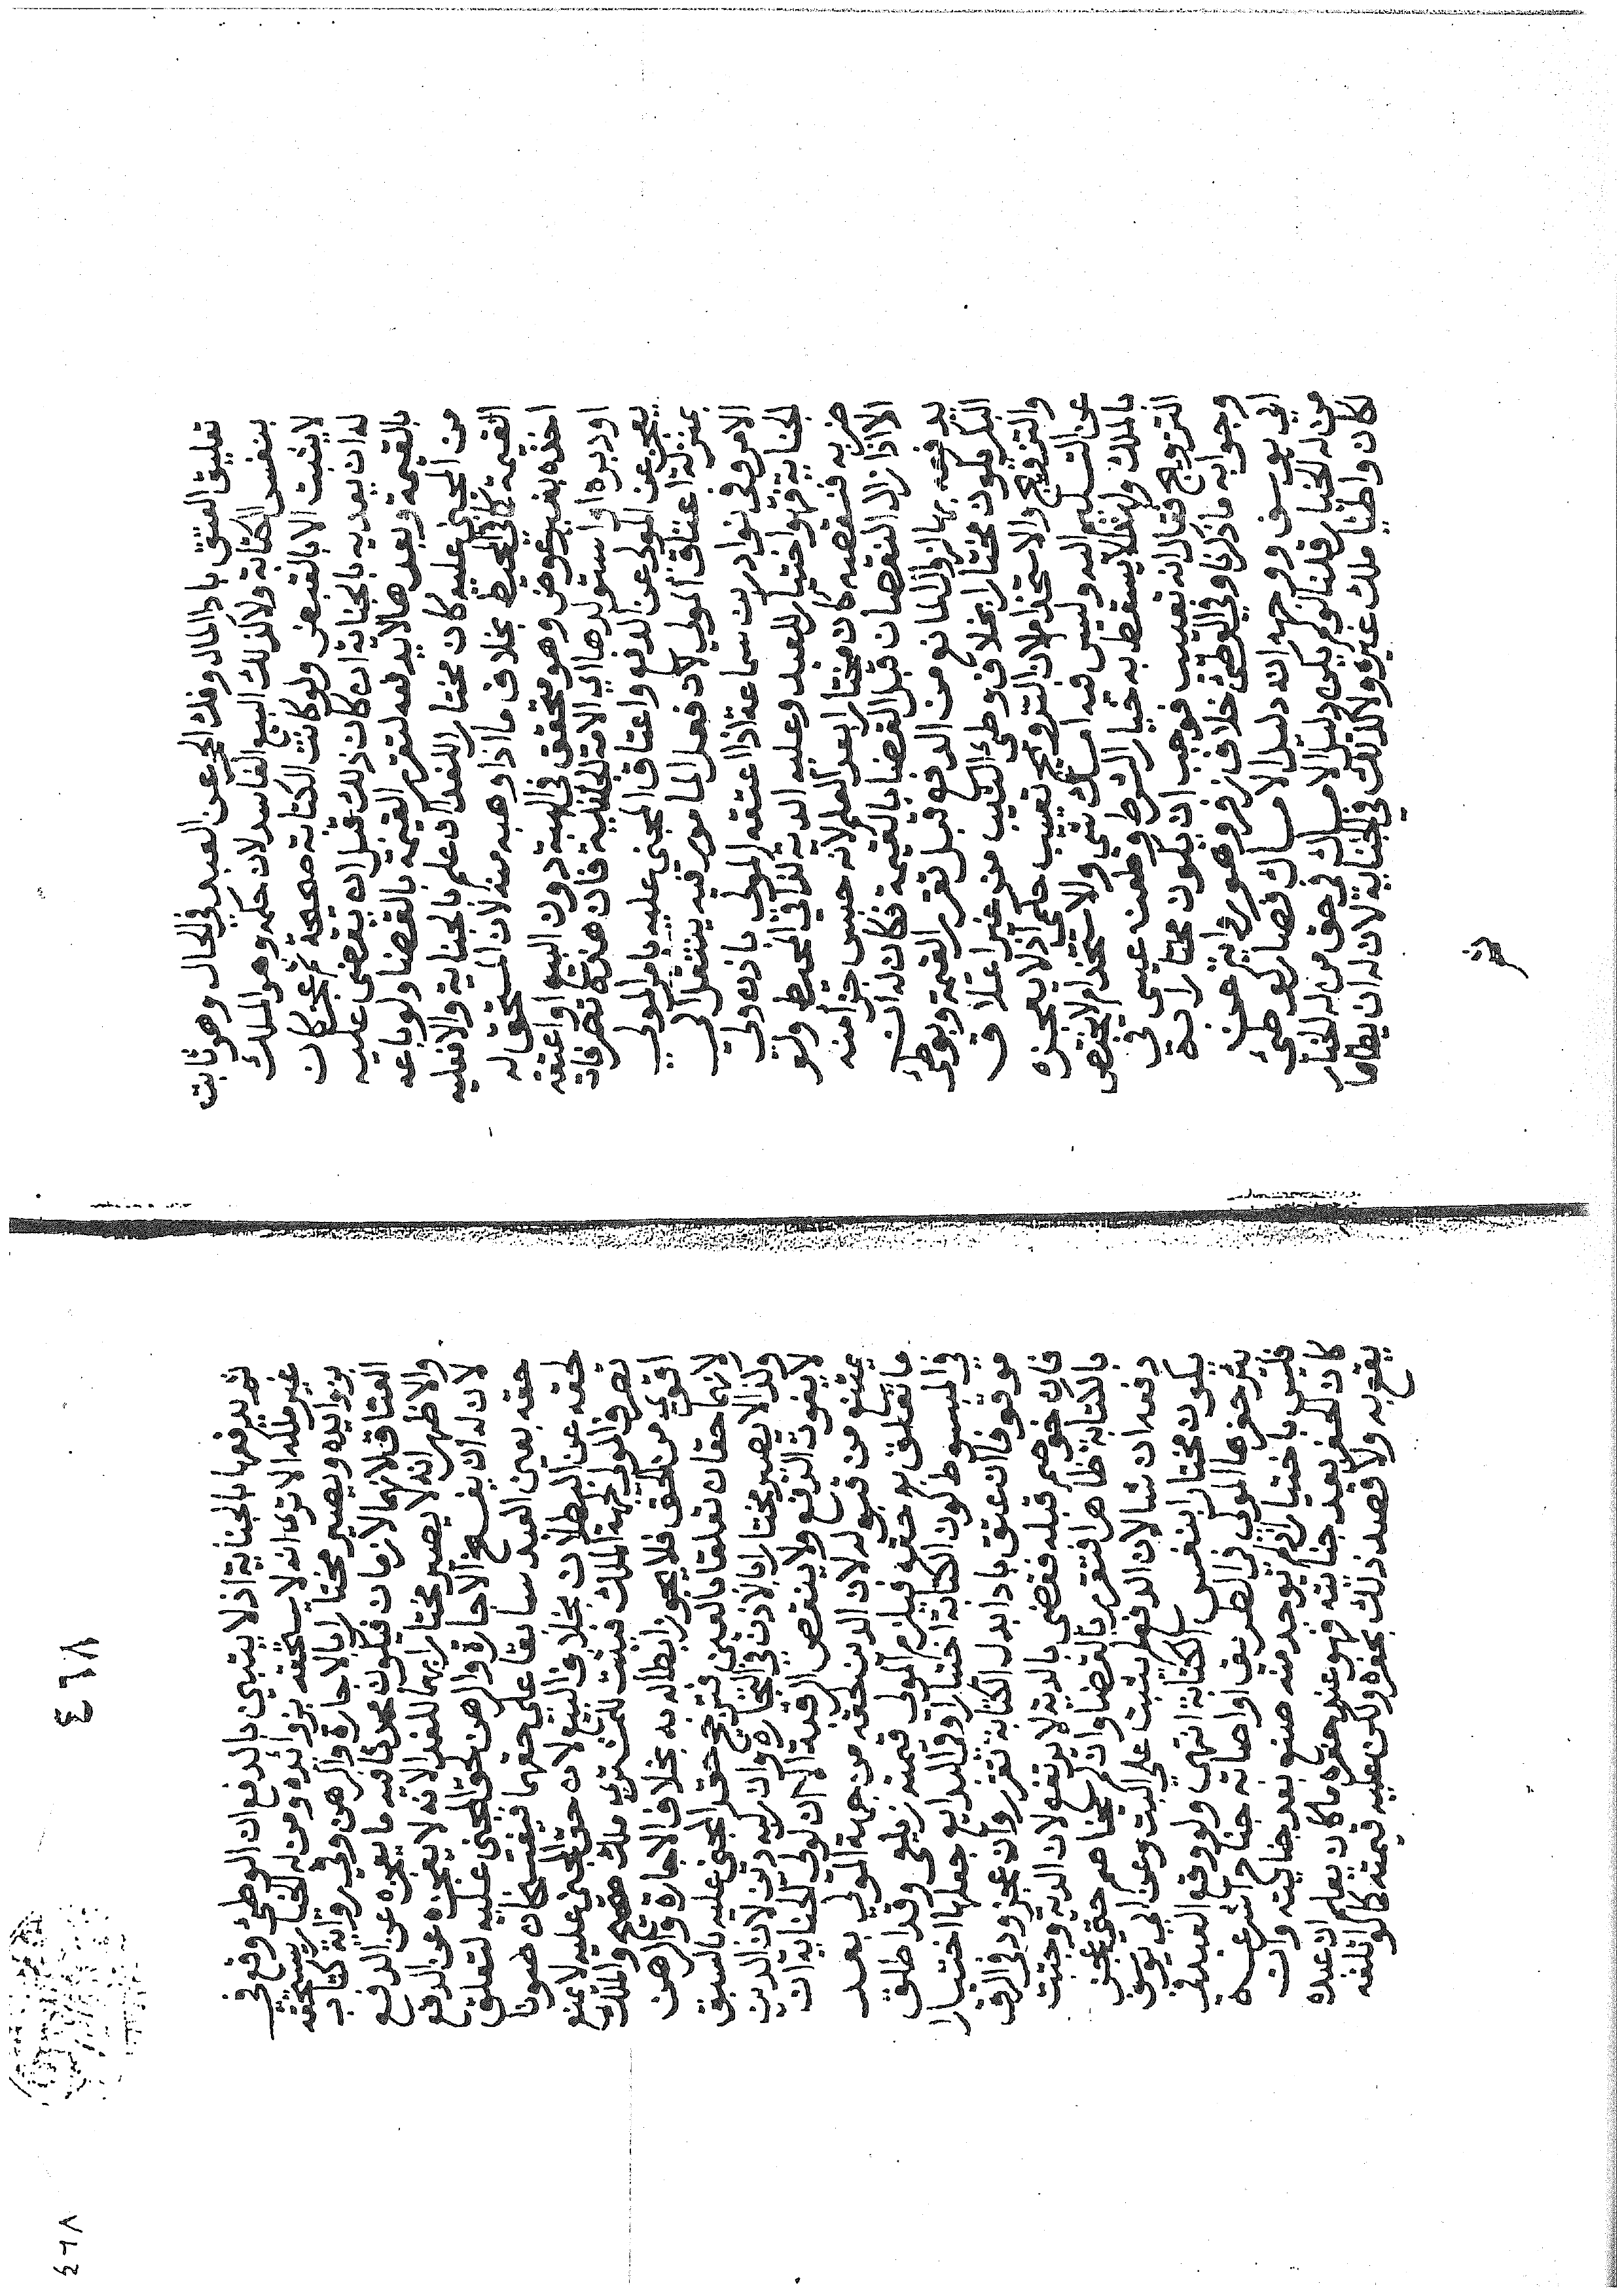 تعليق العتق باداء المال وفك الحجر عن العبد في الحال وهو ثابت
بنفس الكتابة ولا كذلك البيع الفاسد لان حكمه وهو الملك
لا يثبت الا بالقبض ولو كانت الكتابة صحيحة ثم عجز كان
له ان يفديه بالجناية ان كان ذلك قبل ان يقضى عليه
بالقيمة وبعدها لا يدفعه لتقرر القيمة بالقضا ولو باعه
من المجنى عليه كان مختارا للفدا ان علم بالجناية والا فعليه
القيمة كما في المحيط بخلاف ما اذا وهبه منه لان المستحق له
اخذه بغير عوض وهو متحقق في الهبة دون البيع او اعتقه
او دبره او استولدها اي الامة الجانية فان هذه تصرفات
يعجز عن المولى عن الدفع واعتاق المجنى عليه بامر المولى
بمنزلة اعتاق المولى لان فعل المامور فيه ينتقل الى
الامر وفي نوادر بن سماعة اذا اعتقه المولى باذن ولي
الجناية فهو اختيار للعبد وعليه الدية كذا في المحيط ولو
ضربه فنقصه كان مختارا بعد العلم لانه حبس جزا منه
الا اذا زال النقصان قبل القضا بالقيمة فكان له ان
يدفعه بها لزوال المانع من الدفع قبل تقرر القيمة وبوطئ
البكر يكون مختارا بخلاف وطئ الثيب من غير اعلاق
والتزويج والاستخدام لان التزويج تعييب حكمي اذ لا يعجزه
عن التسليم اليه وليس فيه امساك شى والاستخدام لا يختص
بالملك ولهذا لا يسقط به خيار الشرط وطعن عيسى في
التزويج فقال انه تعييب فوجب ان يكون مختارا به
وجوابه ما ذكرنا وفي الوطئ خلاف زفر وهو رواية عن
ابي يوسف ووجهه انه دليل الامساك فصار كوطئ
من له الخيار قلنا لو لم يكن دليل الامساك في حق من له الخيار
لكان واطئا ملك غيره ولا كذلك في الجناية لان له ان يطاها
ثم
٤٦٨
ثم يدفعها بالجناية اذ لا يتبين بالدفع ان الوطئ وقع في
غير ملكه الا ترى انه لا يستحقه بزوائده ومن له الخيار يستحقه
بزوايده ويصير مختارا بالاجارة والرهن وفي رواية كتاب
العتاق لانهما لازمان فيكون محدثا فيه ما يعجزه عن الدفع
والاظهر انه لا يصير مختارا بهما للفدا لانه لا يعجزه عن الدفع
لان له ان يفسخ الاجارة والرهن لحق المجني عليه لتعلق
حقه بعين العبد سابقا على حقهما فيفسخان صونا
لحقه عن البطلان بخلاف البيع لان حق المجنى عليه لا يمنع
تصرف المولى لجهة الملك فيثبت للمشتري ملك صحيح والملك
اقوى من الحق فلا يجوز ابطاله به بخلاف الاجارة والرهن
لانهما حقان تعلقا بالعين فترجح حق المجنى عليه بالسبق
ولذا لا يصير مختارا بالاذن في التجارة وان ركبه دين لان الدين
لا يفوت الدفع ولا ينقص الرقبة الا ان لولي الجناية ان
يمتنع من قبوله لان الدين لحقه من جهة المولى بعد
ما تعلق به حقه فيلزم المولى قيمته زيلعي وقد اطلق
في المبسوط كون الكتابة اختيارا وفي البدايع جعلها اختيارا
موقوفا ان عتق بادا بدل الكتابة تقرر وان عجز ورد في الرق
فان خوصم قبله فقضى بالدية لا يرتفع لان الدية وجبت
بالكتابة ظاهرا فتقرر بالقضا وان لم يخاصم حتى عجز
دفعه ان شا لان الدفع لم يثبت على البت وعن ابي يوسف
يكون مختارا بنفس الكتابة انتهى ولو وقع العبد في
بئر حفرها المولى في الطريق او اصابه جناح اشرعه
فليس باختيار اذ لم يوجد منه صنع بعد جنايته وان
كان الحفر بعد جنايته فهو عند حفره ما كان يعلم ان عبده
يقع به ولا قصد ذلك بحفره ولكن عليه قيمته كما لو اتلفه
٤٦٨